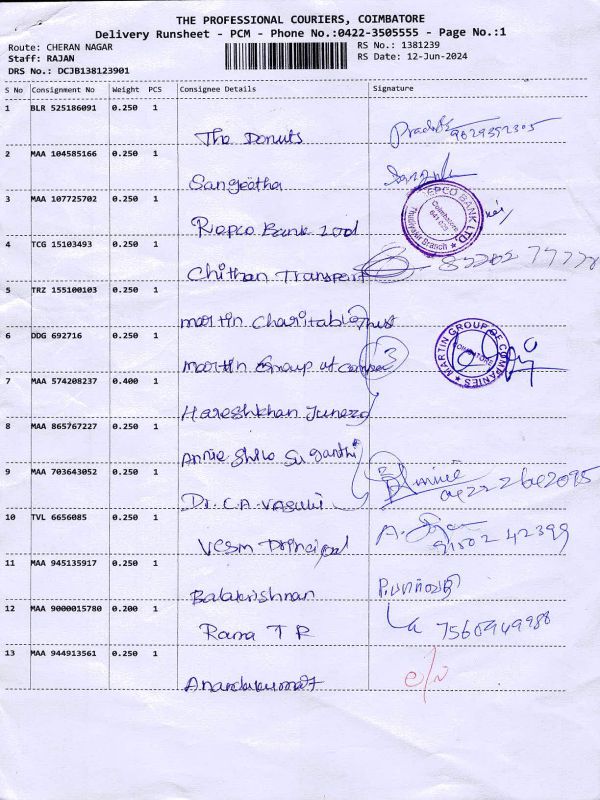 THE PROFESSIONAL COURIERS, COIMBATORE
Delivery Runsheet - PCM - Phone No.:0422-3505555 - Page No.:1
Route: CHERAN NAGAR RS No.: 1381239
Staff: RAJAN RS Date: 12-Jun-2024
DRS No.: DCJB138123901
S No Consignment No Weight PCS Consignee Details Signature
1 BLR 525186091 0.250 1
The Donuts 9629392305
2 MAA 104585166 0.250 1
Sangeetha
3 MAA 107725702 0.250 1
REPCO BANK LTD
Coimbatore
641 025
Thudiyalur Branch
Repco Bank
4 TCG 15103493 0.250 1
Chithan Transport
5 TRZ 155100103 0.250 1
martin Charitable Trust
6 DDG 692716 0.250 1
MARTIN GROUP OF COMPANIES
COIMBATORE
martin Group of 3
7 MAA 574208237 0.400 1
Hareshkhan
8 MAA 865767227 0.250 1
Annie
9 MAA 703643052 0.250 1
Dr. C.A. Vasuki
10 TVL 6656085 0.250 1
VCSM Principal
11 MAA 945135917 0.250 1
Balakrishnan
12 MAA 9000015780 0.200 1
Rama T R 7560949988
13 MAA 944913561 0.250 1
Anandakumar